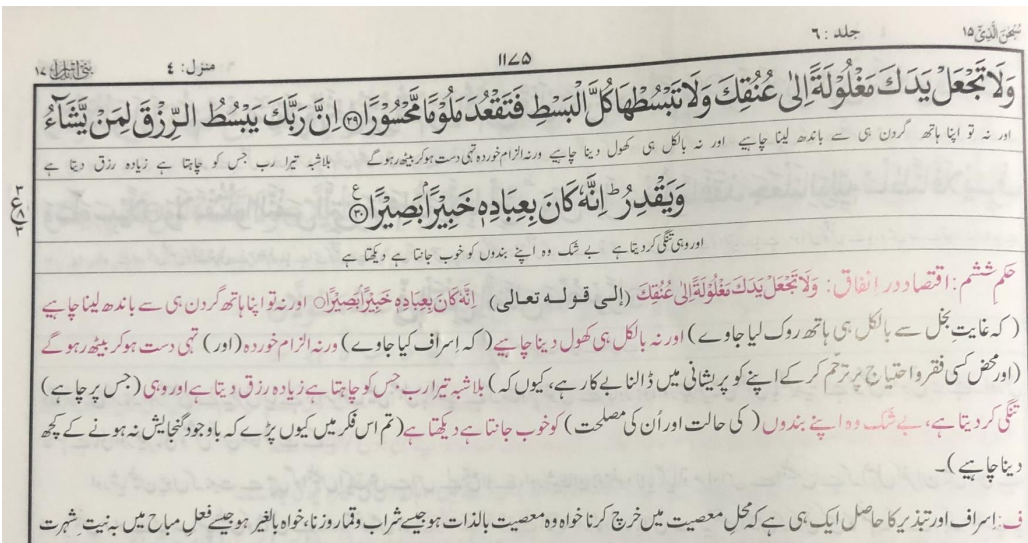 سُبْحٰنَ الَّذِیْ ۱۵ جلد : ۶
۱۱۷۵ منزل: ۴ بنی اسرائیل ۱۷
وَلَا تَجْعَلْ يَدَكَ مَغْلُوْلَةً اِلٰى عُنُقِكَ وَلَا تَبْسُطْهَا كُلَّ الْبَسْطِ فَتَقْعُدَ مَلُوْمًا مَّحْسُوْرًا ﴿۲۹﴾ اِنَّ رَبَّكَ يَبْسُطُ الرِّزْقَ لِمَنْ يَّشَآءُ
اور نہ تو اپنا ہاتھ گردن ہی سے باندھ لینا چاہیے اور نہ بالکل ہی کھول دینا چاہیے ورنہ الزام خوردہ تہی دست ہوکر بیٹھ رہوگے بلاشبہ تیرا رب جس کو چاہتا ہے زیادہ رزق دیتا ہے
وَيَقْدِرُ ؕ اِنَّهٗ كَانَ بِعِبَادِهٖ خَبِيْرًۢا بَصِيْرًا ﴿۳۰﴾ ع
۳ ع ۸ ۳
اور وہی تنگی کردیتا ہے بے شک وہ اپنے بندوں کو خوب جانتا ہے دیکھتا ہے
حکم ششم: اقتصاد در اِنفاق: وَلَا تَجْعَلْ يَدَكَ مَغْلُوْلَةً اِلٰى عُنُقِكَ (الی قولہ تعالی) اِنَّهٗ كَانَ بِعِبَادِهٖ خَبِيْرًۢا بَصِيْرًا○ اور نہ تو اپنا ہاتھ گردن ہی سے باندھ لینا چاہیے
( کہ غایت بخل سے بالکل ہی ہاتھ روک لیا جاوے ) اور نہ بالکل ہی کھول دینا چاہیے ( کہ اِسراف کیا جاوے ) ورنہ الزام خوردہ ( اور ) تہی دست ہوکر بیٹھ رہوگے
( اور محض کسی فقر و احتیاج پر ترحّم کرکے اپنے کو پریشانی میں ڈالنا بے کار ہے، کیوں کہ ) بلاشبہ تیرا رب جس کو چاہتا ہے زیادہ رزق دیتا ہے اور وہی ( جس پر چاہے )
تنگی کردیتا ہے، بے شک وہ اپنے بندوں ( کی حالت اور اُن کی مصلحت ) کو خوب جانتا ہے دیکھتا ہے ( تم اس فکر میں کیوں پڑے کہ باوجود گنجایش نہ ہونے کے کچھ
دینا چاہیے )۔
ف: اِسراف اور تبذیر کا حاصل ایک ہی ہے کہ محلِ معصیت میں خرچ کرنا خواہ وہ معصیت بالذات ہو جیسے شراب و قمار و زنا، خواہ بالغیر ہو جیسے فعلِ مباح میں بہ نیت شہرت